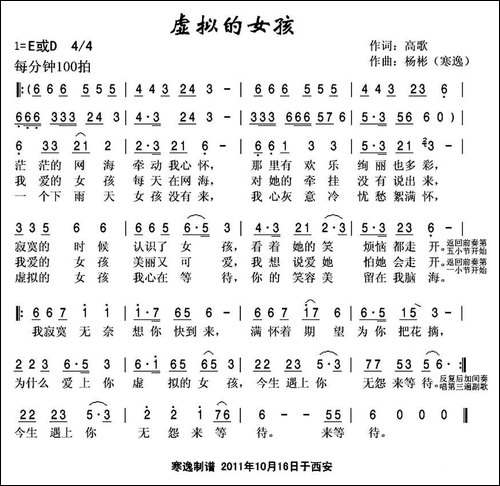 虚拟的女孩
1=E或D 4/4 作词：高歌
每分钟100拍 作曲：杨彬（寒逸）
‖:(6 6 6 5 5 5 | 4 4 3 2 4 3 - | 6 6 6 5 5 5 | 4 4 3 2 3 6 |
666 333 24 3 | 4·3 24 3 - | 333 666 57 6 | 5·3 56 6 0) |
6 33 21 2 | 2·1 24 3 - | 3 3 6 6 5 | 5·3 21 2 3 - |
茫茫的网海 牵动我心怀， 那里有欢乐 绚丽也多彩，
我爱的女孩 每天在网海， 对她的牵挂 没有说出来，
一个下雨天 女孩没有来， 我心灰意冷 忧愁絮满怀，
3 35 6 6 | 5 5 5 6 6·5 | 3·5 21 2·3 | 5·3 21 6 - :‖
寂寞的时候 认识了女孩， 看着她的笑 烦恼都走开。返回前奏第五小节开始
我爱的女孩 美丽又可爱， 我想说爱她 怕她会走开。返回前奏第一小节开始
虚拟的女孩 我心在等待， 你的笑容美 留在我脑海。
‖: 6 67 1 1 | 1·7 67 3 - | 6 67 1 76 | 6·5 15 3 - |
我寂寞无奈 想你快到来， 满怀着期望 为你把花摘，
2 2 3 6·5 3 | 6·1 6 5 6 5·3 | 2 2 2 3 5·3 | 7 7 5 3 5 6 - :‖
为什么爱上你 虚拟的女孩， 今生遇上你 无怨来等待。反复后加间奏唱第三遍副歌
22 22 5·3 | 2· 2 1 76 | 6 - - 5 3 | 6 0 0 0 ‖
今生遇上你 无怨来等待。 来等待。
寒逸制谱 2011年10月16日于西安